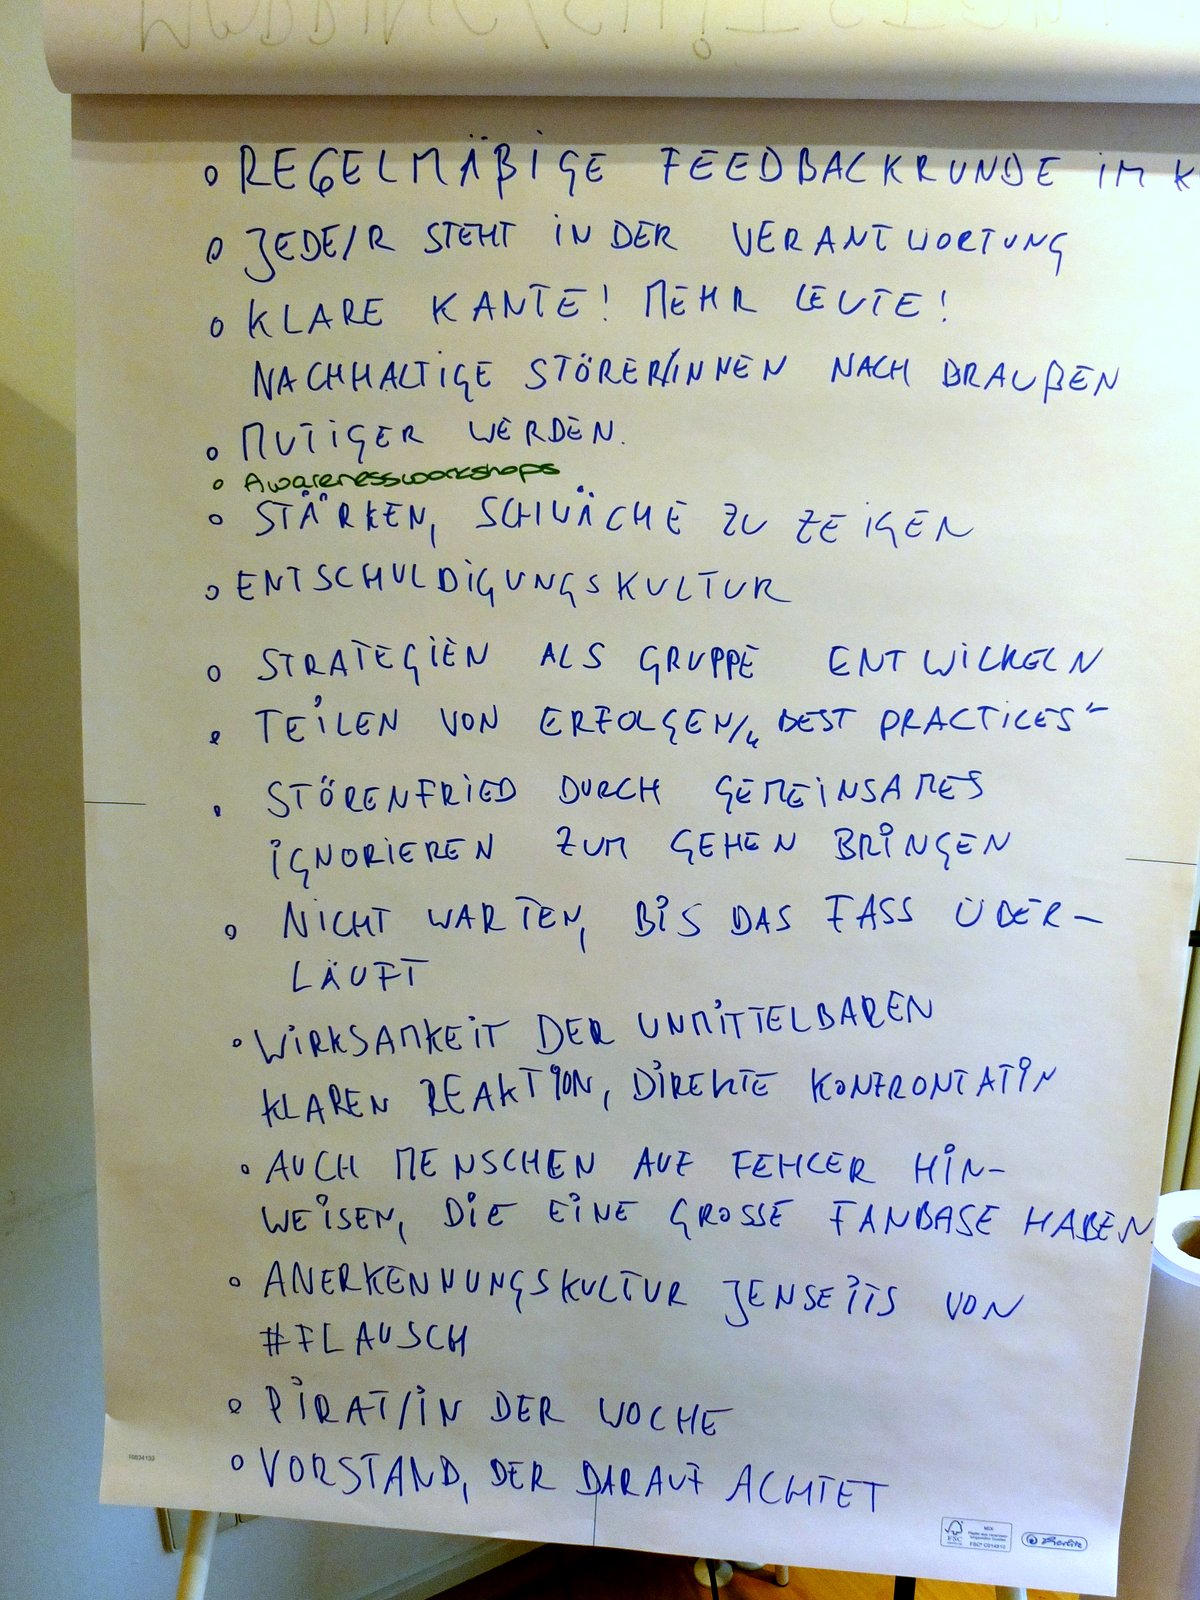 o REGELMÄßIGE FEEDBACKRUNDE IM K
o JEDE/R STEHT IN DER VERANTWORTUNG
o KLARE KANTE! MEHR LEUTE!
NACHHALTIGE STÖRER/INNEN NACH DRAUßEN
o MUTIGER WERDEN.
o Awarenessworkshops
o STÄRKEN, SCHWÄCHE ZU ZEIGEN
o ENTSCHULDIGUNGSKULTUR
o STRATEGIEN ALS GRUPPE ENTWICKELN
• TEILEN VON ERFOLGEN/„BEST PRACTICES“
• STÖRENFRIED DURCH GEMEINSAMES
IGNORIEREN ZUM GEHEN BRINGEN
o NICHT WARTEN, BIS DAS FASS ÜBER-
LÄUFT
• WIRKSAMKEIT DER UNMITTELBAREN
KLAREN REAKTION, DIREKTE KONFRONTATIN
• AUCH MENSCHEN AUF FEHLER HIN-
WEISEN, DIE EINE GROSSE FANBASE HABEN.
o ANERKENNUNGSKULTUR JENSEITS VON
#FLAUSCH
o PIRAT/IN DER WOCHE
o VORSTAND, DER DARAUF ACHTET
10834133
FSC
MIX
FSC® C014310
Herlitz